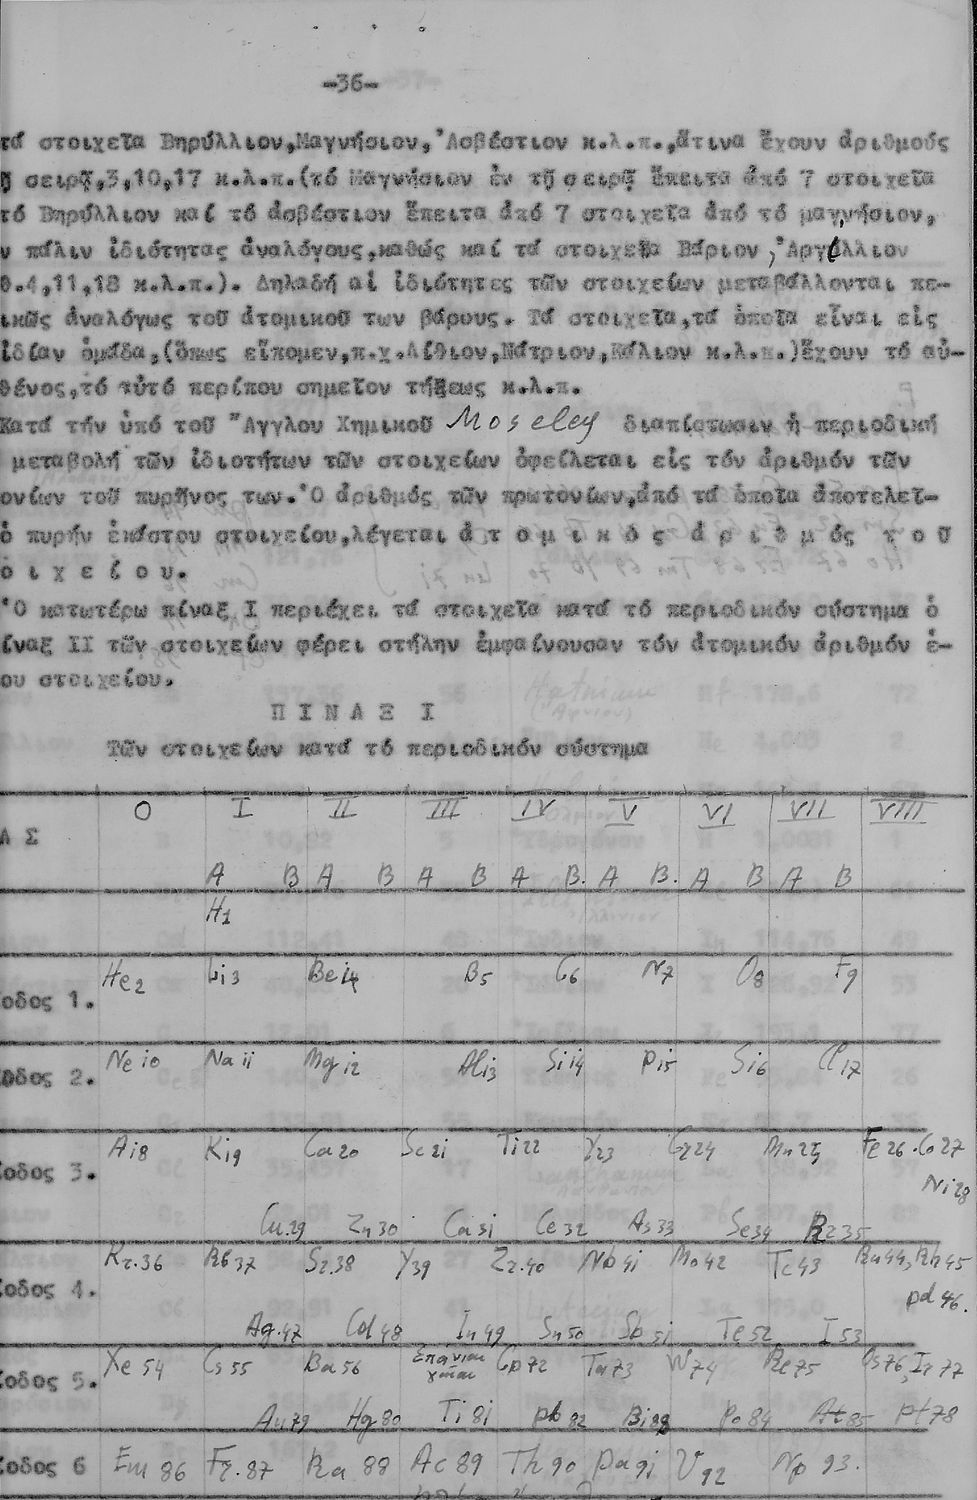 -36-
τά στοιχεῖα Βηρύλλιον,Μαγνήσιον,Ἀσβέστιον κ.λ.π.,ἅτινα ἔχουν ἀριθμούς
ῇ σειρᾷ,3,10,17 κ.λ.π.(τό Μαγνήσιον ἐν τῇ σειρᾷ ἔπειτα ἀπό 7 στοιχεῖα
τό Βηρύλλιον καί τό ἀσβέστιον ἔπειτα ἀπό 7 στοιχεῖα ἀπό τό μαγνήσιον,
ν πάλιν ἰδιότητας ἀναλόγους,καθώς καί τά στοιχεῖα Βάριον, Ἀργίλλιον
θ.4,11,18 κ.λ.π.). Δηλαδή αἱ ἰδιότητες τῶν στοιχείων μεταβάλλονται πε-
ικῶς ἀναλόγως τοῦ ἀτομικοῦ των βάρους. Τά στοιχεῖα,τά ὁποῖα εἶναι εἰς
ἰδίαν ὁμάδα,(ὅπως εἴπομεν,π.χ.Λίθιον,Νάτριον,Κάλιον κ.λ.π.)ἔχουν τό αὐ-
θένος,τό αὐτό περίπου σημεῖον τήξεως κ.λ.π.
Κατά τήν ὑπό τοῦ Ἄγγλου Χημικοῦ Moseley διαπίστωσιν ἡ περιοδική
μεταβολή τῶν ἰδιοτήτων τῶν στοιχείων ὀφείλεται εἰς τόν ἀριθμόν τῶν
ονίων τοῦ πυρῆνος των.Ὁ ἀριθμός τῶν πρωτονίων,ἀπό τά ὁποῖα ἀποτελεῖ-
ὁ πυρήν ἑκάστου στοιχείου,λέγεται ἀ τ ο μ ι κ ό ς ἀ ρ ι θ μ ό ς τ ο ῦ
ο ι χ ε ί ο υ.
Ὁ κατωτέρω πίναξ I περιέχει τά στοιχεῖα κατά τό περιοδικόν σύστημα ὁ
ίναξ II τῶν στοιχείων φέρει στήλην ἐμφαίνουσαν τόν ἀτομικόν ἀριθμόν ἑ-
ου στοιχείου.
Π Ι Ν Α Ξ Ι
Τῶν στοιχείων κατά τό περιοδικόν σύστημα
Α Σ O I II III IV V VI VII VIII
A B A B A B A B. A B. A B A B
H1
ίοδος 1. He2 Li3 Be4 B5 C6 N7 O8 F9
ίοδος 2. Ne10 Na11 Mg12 Al13 Si14 P15 S16 Cl17
ίοδος 3. A18 K19 Ca20 Sc21 Ti22 V23 Cr24 Mn25 Fe26.Co27
Ni28
Cu29 Zn30 Ca31 Ce32 As33 Se34 Br35
ίοδος 4. Kr.36 Rb37 Sr38 Y39 Zr.40 Nb41 Mo42 Tc43 Ru44,Rh45
pd46.
Ag.47 Cd48 In49 Sn50 Sb51 Te52 I53
ίοδος 5. Xe54 Cs55 Ba56 Σπάνιαι γαῖαι Cp72 Ta73 W74 Re75 Os76,Ir77
Au79 Hg80 Ti81 pb82 Bi83 Po84 At85 Pt78
ίοδος 6 Em86 Fr.87 Ra88 Ac89 Th90 Pa91 U92 Np93.